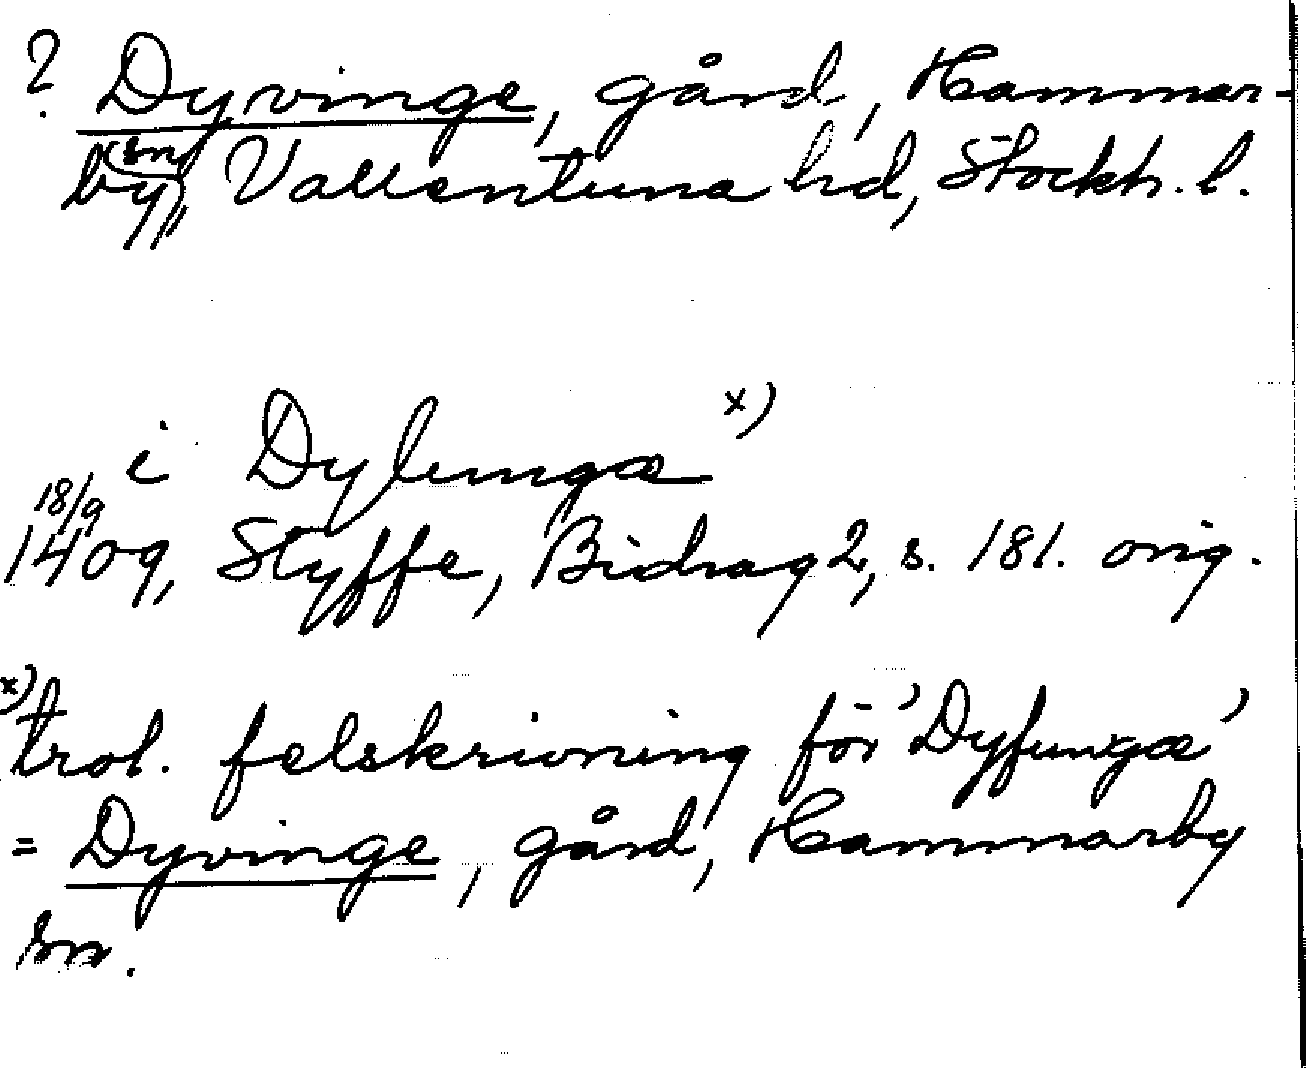 ? Dyvinge, gård, Hammar-
by (sn), Vallentuna hd, Stockh. l.
i Dylungæ x)
18/9
1409, Styffe, Bidrag 2, s. 181. orig.
x) trol. felskrivning för 'Dyfungæ'
= Dyvinge, gård, Hammarby
sn.